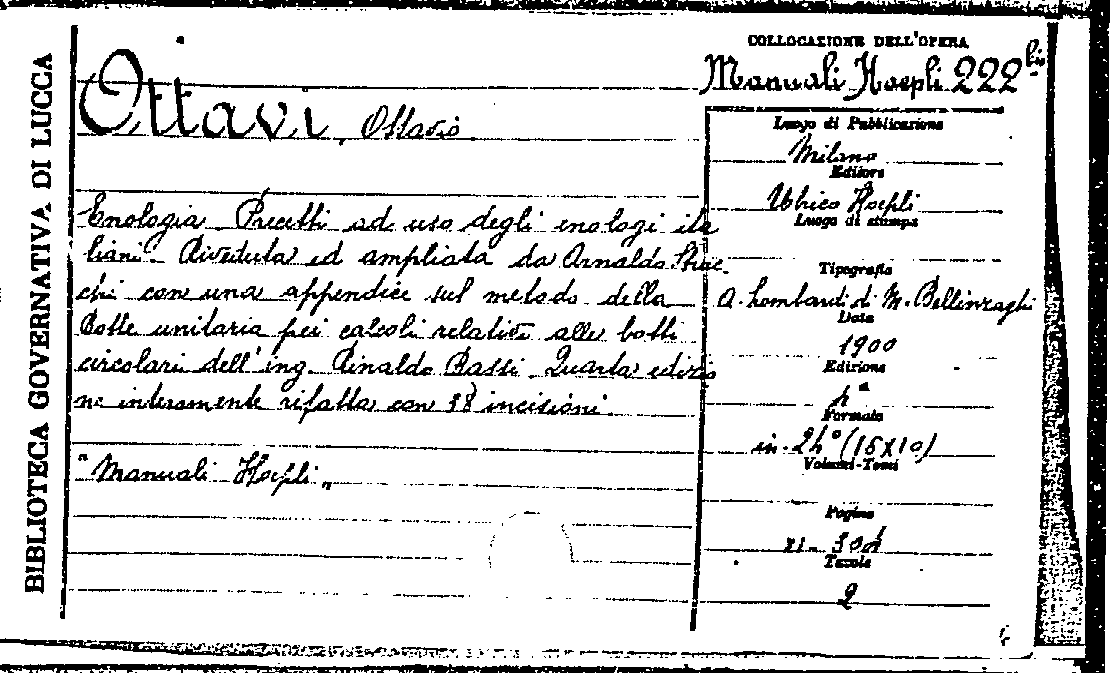 BIBLIOTECA GOVERNATIVA DI LUCCA
Ottavi, Ottavio
Enologia Precetti ad uso degli enologi ita
liani Riveduta ed ampliata da Arnaldo Strac
chi con una appendice sul metodo della
Botte unitaria pei calcoli relativi alle botti
circolari dell'ing. Rinaldo Bassi. Quarta edizio
ne interamente rifatta con 38 incisioni.
"Manuali Hoepli"
COLLOCAZIONE DELL'OPERA
Manuali Hoepli 222 bis
Luogo di Pubblicazione
Milano
Editore
Ulrico Hoepli
Luogo di stampa
Tipografia
A. Lombardi di M. Bellinzaghi
Data
1900
Edizione
4a
Formato
in-24° (15x10)
Volumi-Tomi
Pagine
XI-
Tavole
2